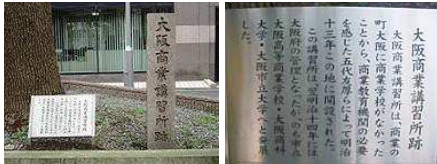 大阪商業講習所跡
大阪商業講習所跡
大阪商業講習所は、商業の
町大阪に商業学校がなかった
ことから、商業教育機関の必要
を感じた五代友厚らによって明治
十三年この地に開設された。
この講習所は、翌明治十四年に
大阪府の管理となったが、のち市立
大阪高等商業学校・大阪商科
大学・大阪市立大学へと発展
した。